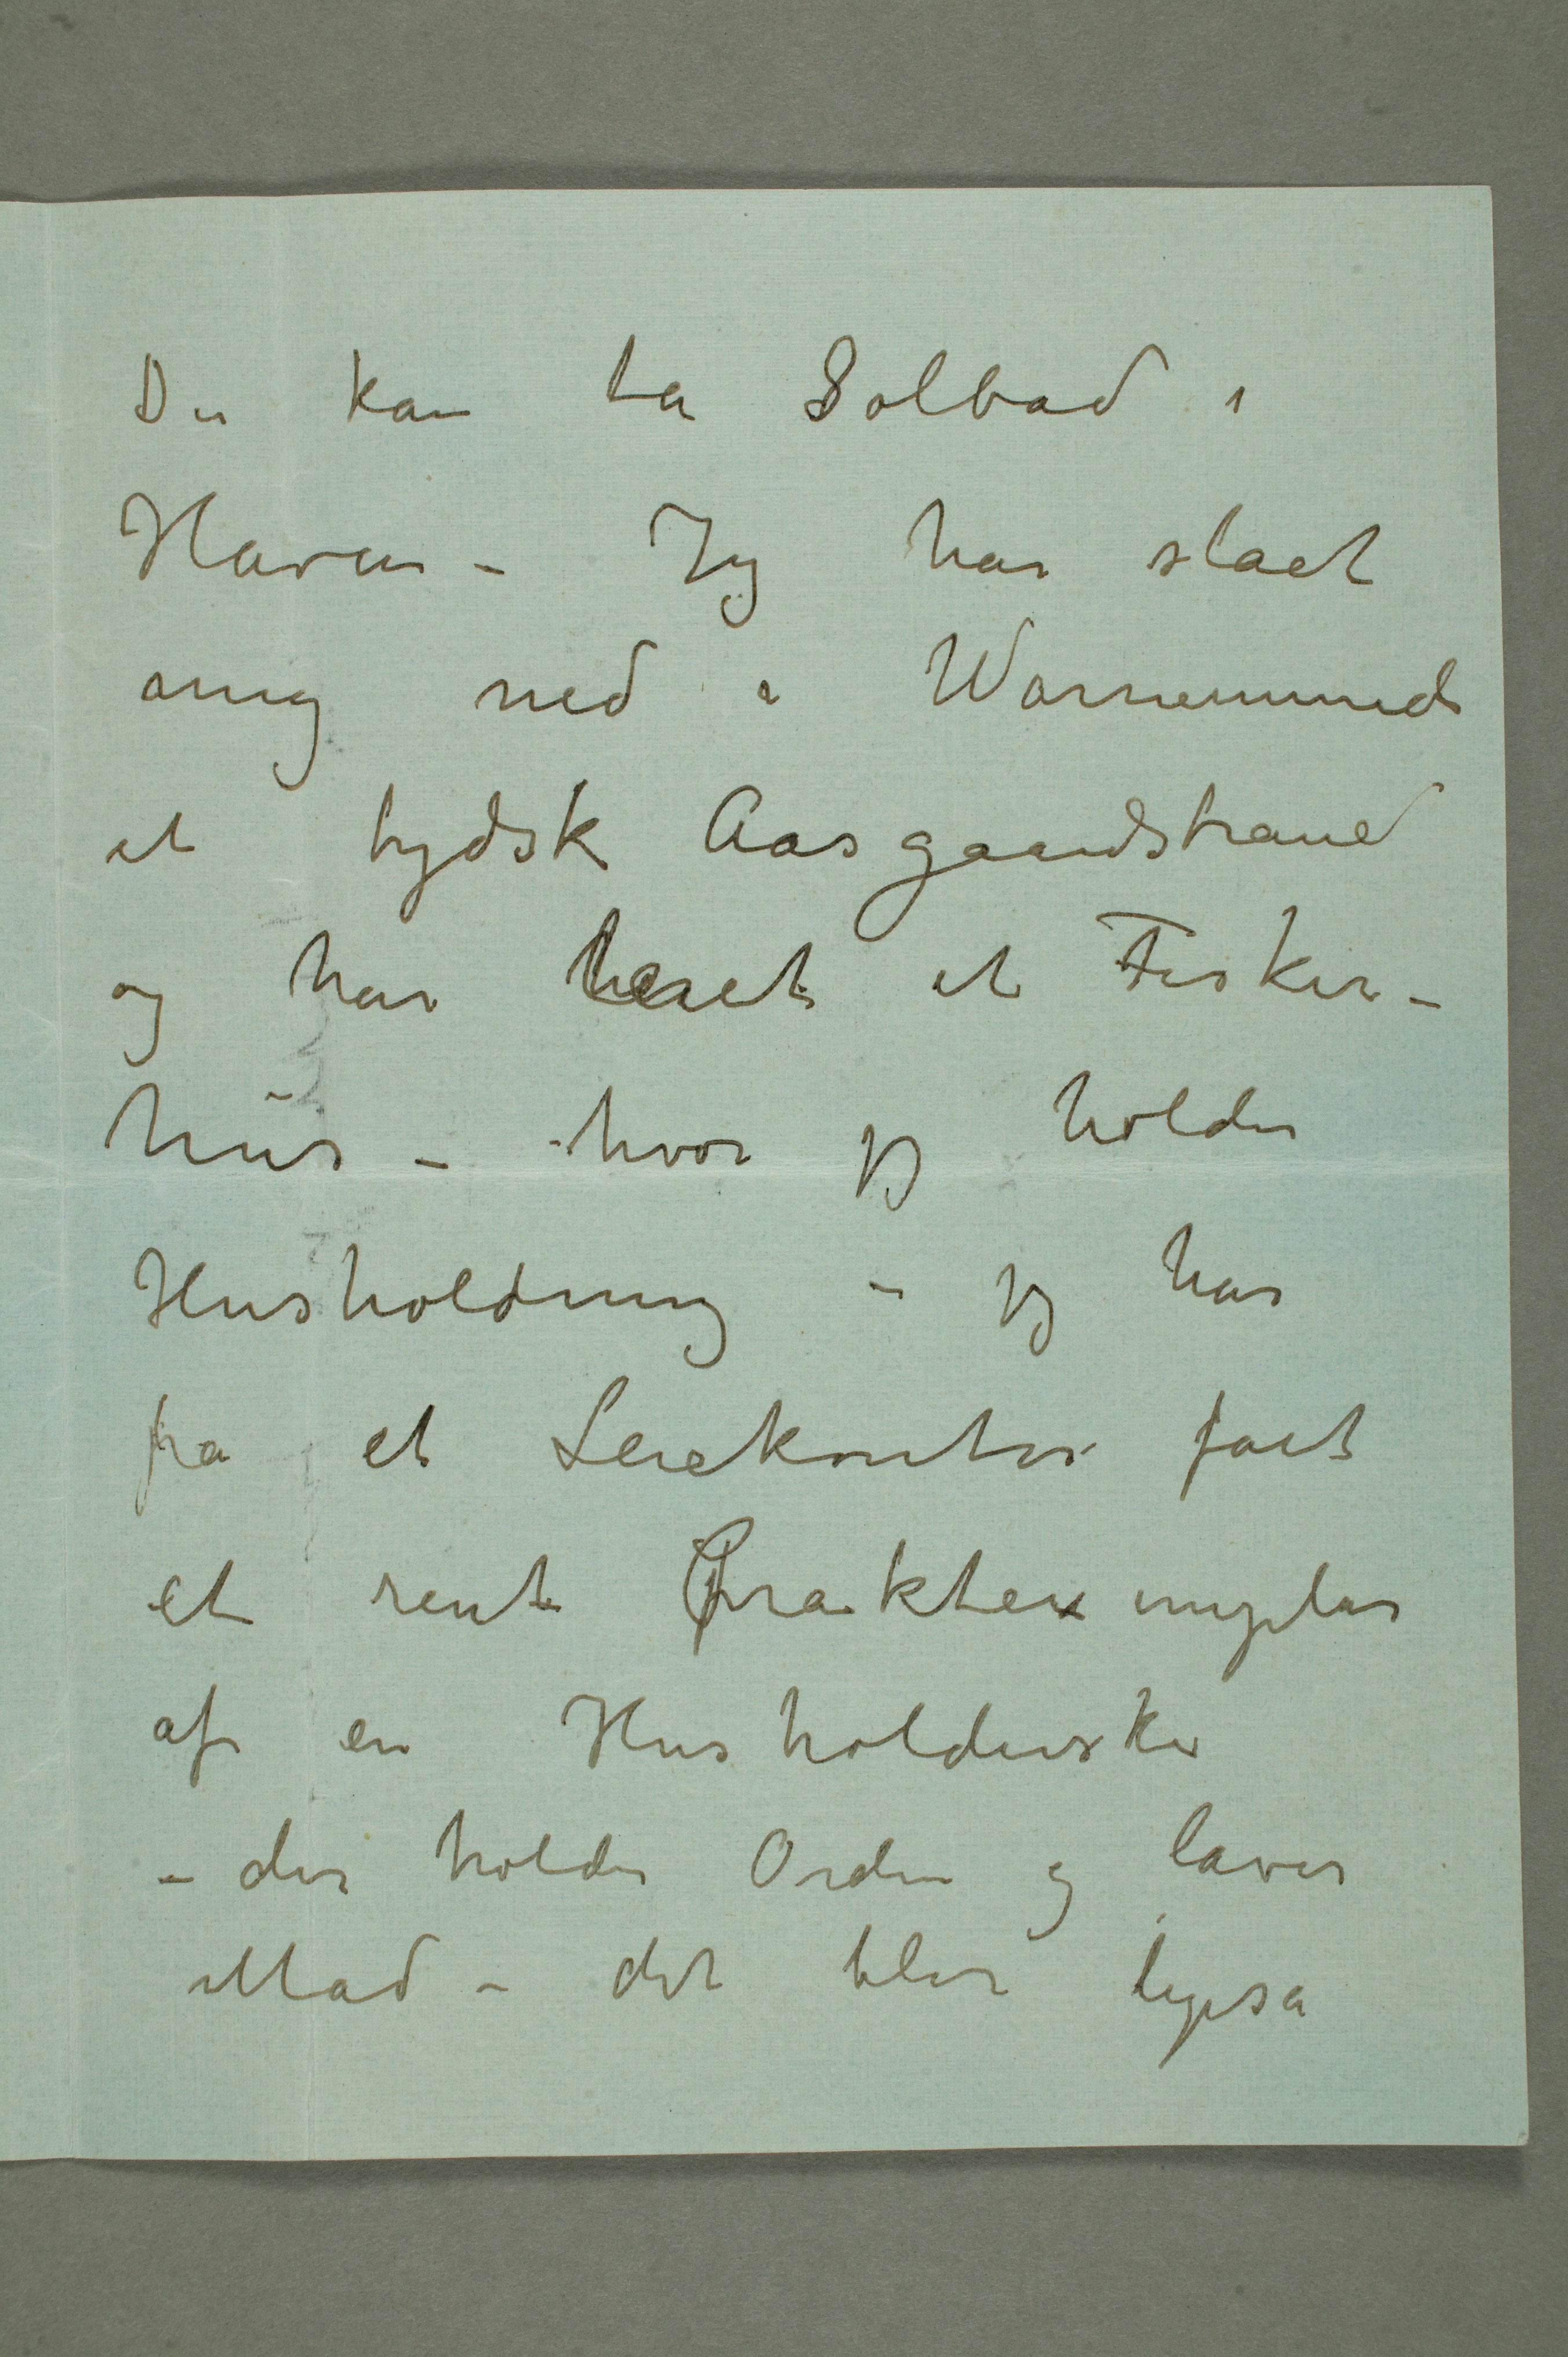 Du kan ta Solbad i
Haven – Jeg har slaet
mig ned i Warnemünde
et tydsk Aasgaardstrand
og har leiet et Fisker-
hus – hvor jeg holder
Husholdning – jeg har
fra et Leiekontor faet
et rent Praktexemplar
af en Husholderske
– der holder Orden og laver
Mad – det blir ligesa